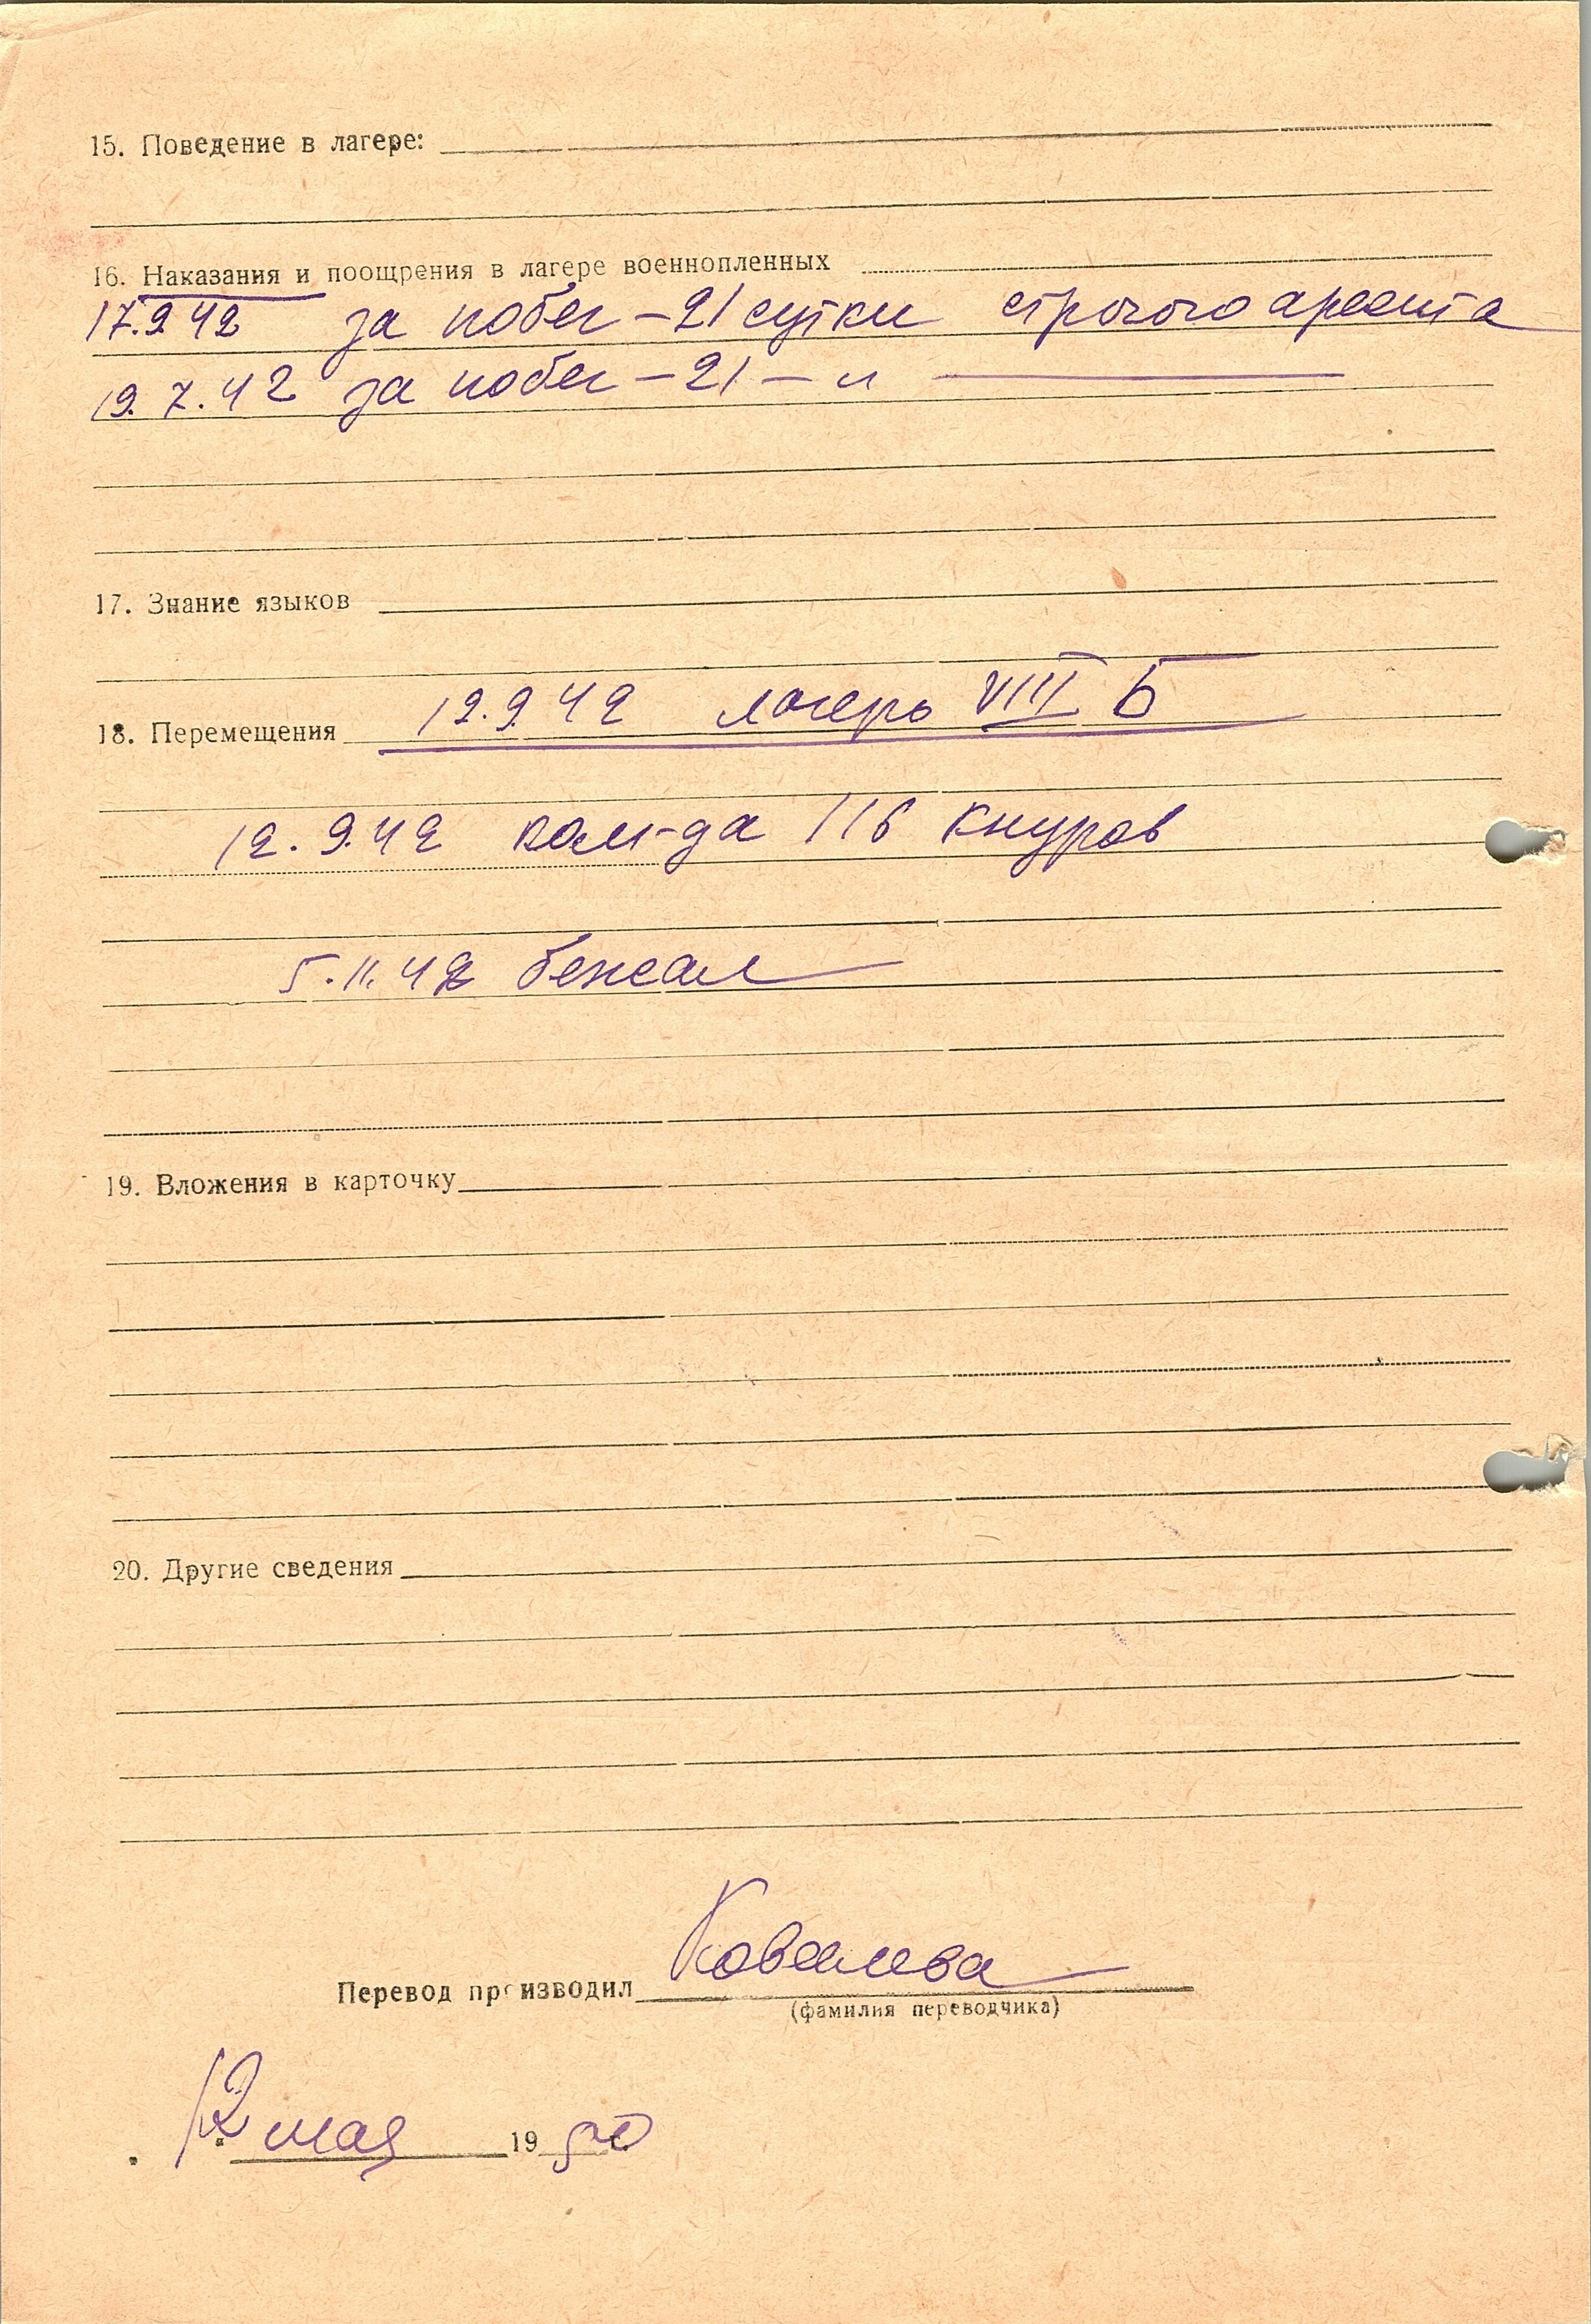 15. Поведение в лагере:
16. Наказания и поощрения в лагере военнопленных
17.9 42 за побег – 21 сутки строгого ареста
19.7.42 за побег – 21 – " –
17. Знание языков
18. Перемещения 12.9 42 лагерь VIII Б
12.9.42 ком-да 116 Кнуров
5.11.42 бежал
19. Вложения в карточку
20. Другие сведения
Перевод производил Ковалева
(фамилия переводчика)
12 мая 19 50